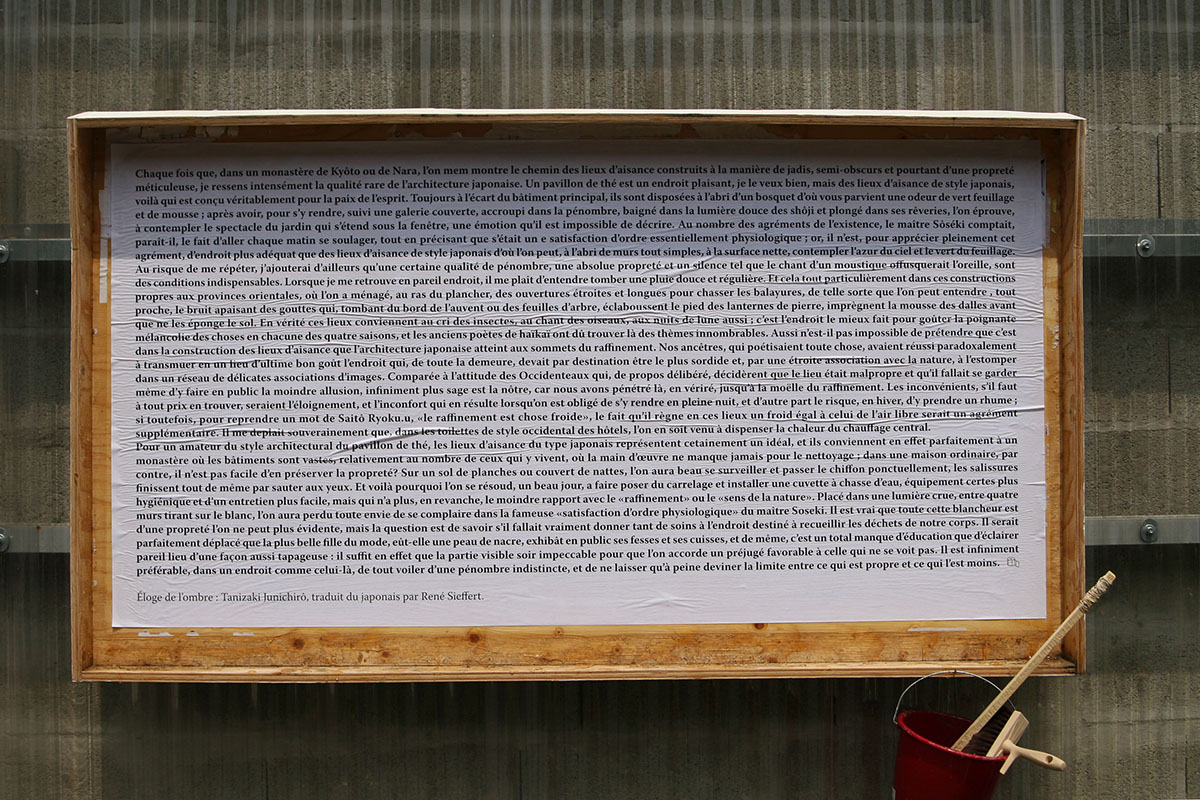 Chaque fois que, dans un monastère de Kyôto ou de Nara, l'on mem montre le chemin des lieux d'aisance construits à la manière de jadis, semi-obscurs et pourtant d'une propreté
méticuleuse, je ressens intensément la qualité rare de l'architecture japonaise. Un pavillon de thé est un endroit plaisant, je le veux bien, mais des lieux d'aisance de style japonais,
voilà qui est conçu véritablement pour la paix de l'esprit. Toujours à l'écart du bâtiment principal, ils sont disposées à l'abri d'un bosquet d'où vous parvient une odeur de vert feuillage
et de mousse ; après avoir, pour s'y rendre, suivi une galerie couverte, accroupi dans la pénombre, baigné dans la lumière douce des shôji et plongé dans ses rêveries, l'on éprouve,
à contempler le spectacle du jardin qui s'étend sous la fenêtre, une émotion qu'il est impossible de décrire. Au nombre des agréments de l'existence, le maître Sôséki comptait,
parait-il, le fait d'aller chaque matin se soulager, tout en précisant que s'était un e satisfaction d'ordre essentiellement physiologique ; or, il n'est, pour apprécier pleinement cet
agrément, d'endroit plus adéquat que des lieux d'aisance de style japonais d'où l'on peut, à l'abri de murs tout simples, à la surface nette, contempler l'azur du ciel et le vert du feuillage.
Au risque de me répéter, j'ajouterai d'ailleurs qu'une certaine qualité de pénombre, une absolue propreté et un silence tel que le chant d'un moustique offusquerait l'oreille, sont
des conditions indispensables. Lorsque je me retrouve en pareil endroit, il me plait d'entendre tomber une pluie douce et régulière. Et cela tout particulièrement dans ces constructions
propres aux provinces orientales, où l'on a ménagé, au ras du plancher, des ouvertures étroites et longues pour chasser les balayures, de telle sorte que l'on peut entendre , tout
proche, le bruit apaisant des gouttes qui, tombant du bord de l'auvent ou des feuilles d'arbre, éclaboussent le pied des lanternes de pierre, imprègnent la mousse des dalles avant
que ne les éponge le sol. En vérité ces lieux conviennent au cri des insectes, au chant des oiseaux, aux nuits de lune aussi ; c'est l'endroit le mieux fait pour goûter la poignante
mélancolie des choses en chacune des quatre saisons, et les anciens poètes de haïkaï ont dû trouver là des thèmes innombrables. Aussi n'est-il pas impossible de prétendre que c'est
dans la construction des lieux d'aisance que l'architecture japonaise atteint aux sommets du raffinement. Nos ancêtres, qui poétisaient toute chose, avaient réussi paradoxalement
à transmuer en un lieu d'ultime bon goût l'endroit qui, de toute la demeure, devait par destination être le plus sordide et, par une étroite association avec la nature, à l'estomper
dans un réseau de délicates associations d'images. Comparée à l'attitude des Occidenteaux qui, de propos délibéré, décidèrent que le lieu était malpropre et qu'il fallait se garder
même d'y faire en public la moindre allusion, infiniment plus sage est la nôtre, car nous avons pénétré là, en vériré, jusqu'à la moëlle du raffinement. Les inconvénients, s'il faut
à tout prix en trouver, seraient l'éloignement, et l'inconfort qui en résulte lorsqu'on est obligé de s'y rendre en pleine nuit, et d'autre part le risque, en hiver, d'y prendre un rhume ;
si toutefois, pour reprendre un mot de Saitô Ryoku.u, «le raffinement est chose froide», le fait qu'il règne en ces lieux un froid égal à celui de l'air libre serait un agrément
supplémentaire. Il me deplait souverainement que, dans les toilettes de style occidental des hôtels, l'on en soit venu à dispenser la chaleur du chauffage central.
Pour un amateur du style architectural du pavillon de thé, les lieux d'aisance du type japonais représentent cetainement un idéal, et ils conviennent en effet parfaitement à un
monastère où les bâtiments sont vastes, relativement au nombre de ceux qui y vivent, où la main d'œuvre ne manque jamais pour le nettoyage ; dans une maison ordinaire, par
contre, il n'est pas facile d'en préserver la propreté? Sur un sol de planches ou couvert de nattes, l'on aura beau se surveiller et passer le chiffon ponctuellement, les salissures
finissent tout de même par sauter aux yeux. Et voilà pourquoi l'on se résoud, un beau jour, a faire poser du carrelage et installer une cuvette à chasse d'eau, équipement certes plus
hygiénique et d'un entretien plus facile, mais qui n'a plus, en revanche, le moindre rapport avec le «raffinement» ou le «sens de la nature». Placé dans une lumière crue, entre quatre
murs tirant sur le blanc, l'on aura perdu toute envie de se complaire dans la fameuse «satisfaction d'ordre physiologique» du maitre Soseki. Il est vrai que toute cette blancheur est
d'une propreté l'on ne peut plus évidente, mais la question est de savoir s'il fallait vraiment donner tant de soins à l'endroit destiné à recueillir les déchets de notre corps. Il serait
parfaitement déplacé que la plus belle fille du mode, eût-elle une peau de nacre, exhibât en public ses fesses et ses cuisses, et de même, c'est un total manque d'éducation que d'éclairer
pareil lieu d'une façon aussi tapageuse : il suffit en effet que la partie visible soir impeccable pour que l'on accorde un préjugé favorable à celle qui ne se voit pas. Il est infiniment
préférable, dans un endroit comme celui-là, de tout voiler d'une pénombre indistincte, et de ne laisser qu'à peine deviner la limite entre ce qui est propre et ce qui l'est moins.
Éloge de l'ombre : Tanizaki Junichirô, traduit du japonais par René Sieffert.